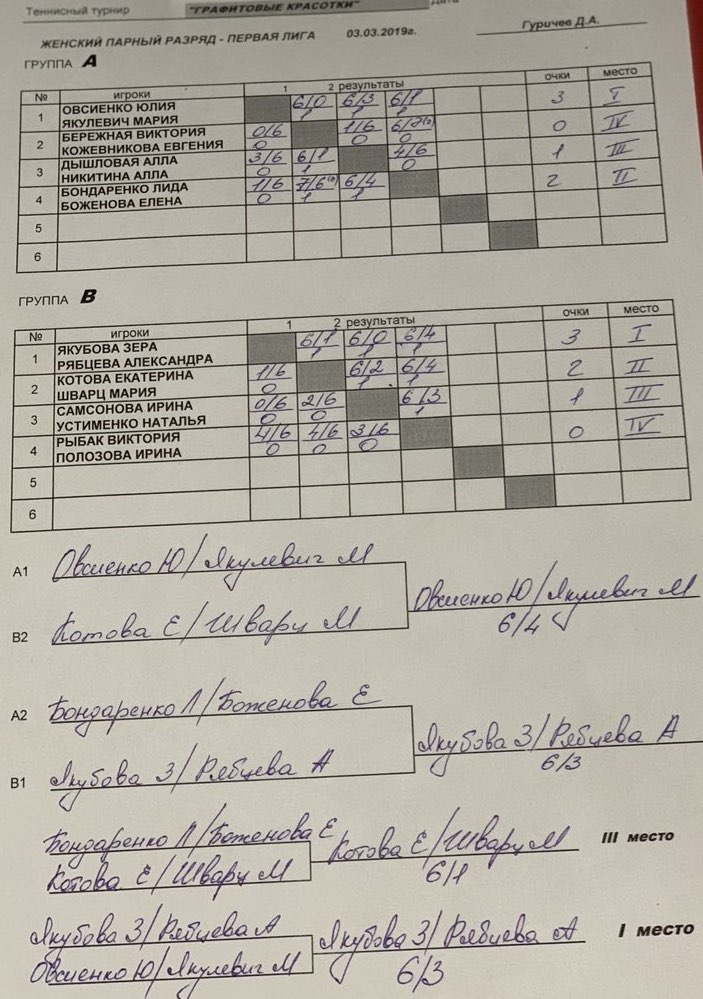 Теннисный турнир "ГРАФИТОВЫЕ КРАСОТКИ" Дата
ЖЕНСКИЙ ПАРНЫЙ РАЗРЯД - ПЕРВАЯ ЛИГА 03.03.2019г. Гуричев Д.А.
ГРУППА А
№ игроки 1 2 результаты очки место
1 ОВСИЕНКО ЮЛИЯ 6/0 6/3 6/1 3 I
ЯКУЛЕВИЧ МАРИЯ 1 1 1
2 БЕРЕЖНАЯ ВИКТОРИЯ 0/6 1/6 6/7 0 IV
КОЖЕВНИКОВА ЕВГЕНИЯ 0 0 0
3 ДЫШЛОВАЯ АЛЛА 3/6 6/1 4/6 1 III
НИКИТИНА АЛЛА 0 1 0
4 БОНДАРЕНКО ЛИДА 1/6 7/6 6/4 2 II
БОЖЕНОВА ЕЛЕНА 0 1 1
5
6
ГРУППА В
№ игроки 1 2 результаты очки место
1 ЯКУБОВА ЗЕРА 6/1 6/0 6/4 3 I
РЯБЦЕВА АЛЕКСАНДРА 1 1 1
2 КОТОВА ЕКАТЕРИНА 1/6 6/2 6/4 2 II
ШВАРЦ МАРИЯ 0 1 1
3 САМСОНОВА ИРИНА 0/6 2/6 6/3 1 III
УСТИМЕНКО НАТАЛЬЯ 0 0 1
4 РЫБАК ВИКТОРИЯ 4/6 4/6 3/6 0 IV
ПОЛОЗОВА ИРИНА 0 0 0
5
6
А1 Овсиенко Ю/Якулевич М
Овсиенко Ю/Якулевич М
В2 Котова Е/Шварц М
6/4
А2 Бондаренко Л/Боженова Е
Якубова З/Рябцева А
В1 Якубова З/Рябцева А
6/3
Бондаренко Л/Боженова Е
Котова Е/Шварц М III место
Котова Е/Шварц М
6/1
Якубова З/Рябцева А
Якубова З/Рябцева А I место
Овсиенко Ю/Якулевич М
6/3